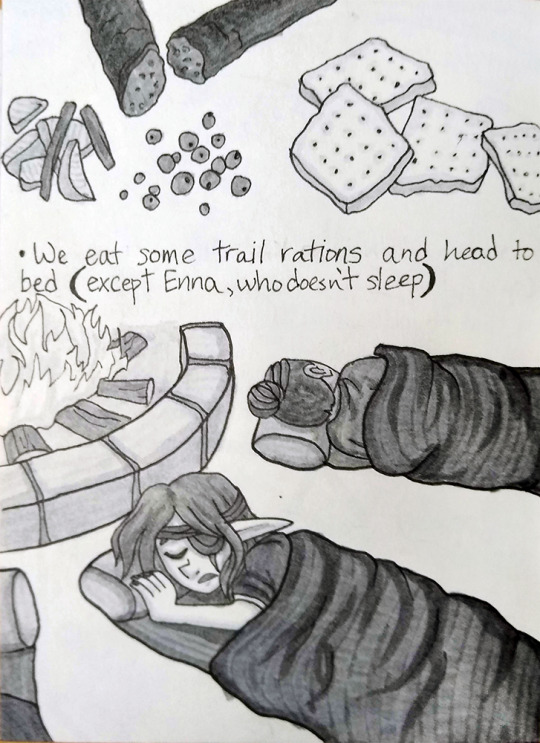 • We eat some trail rations and head to
bed (except Enna, who doesn't sleep)